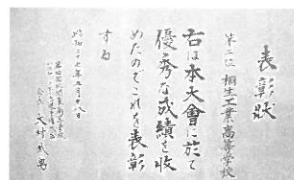 表彰狀
第二位 桐生工業高等学校
右は本大會に於て
優秀な成績を收
めたのでこれを表彰
する
昭和二十七年五月十八日